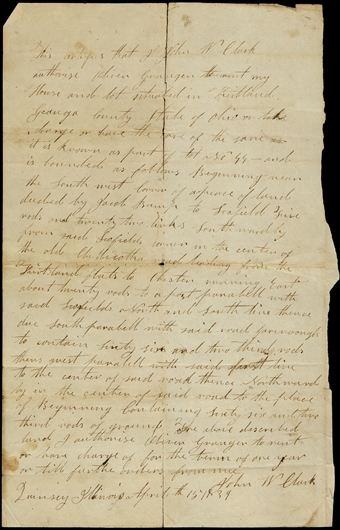 This certifies that I John W. Clark
authorise Oliver Granger to rent my
House and lot situated in Kirtland
Geauga County State of Ohio or take
charge or have the care of the same as
it is known as part of lot No 44 — and
is bounded as follows Beginning near
the South west corner of a peace of land
deeded by Jacob Bump to Scofield Five
rods and twenty two links South wardly
from said Scofields corner in the center of
the old Chillicotha road leading from the
Kirtland flats to Chester running East
about twenty rods to a post parallell with
said Scofields North and South line thence
due south parallell with said road far enough
to contain Sixty six and two thirds rods
thens west parallell with said first line
to the center of said road thence Northward
by in the center of said road to the place
of Beginning Containing Sixty six and two
third rods of ground, The above described
land I authorise Oliver Granger to rent
or have charge of for the term of one year
or till further orders from me
John W. Clark
Quinsey Illinois April th 15 1839